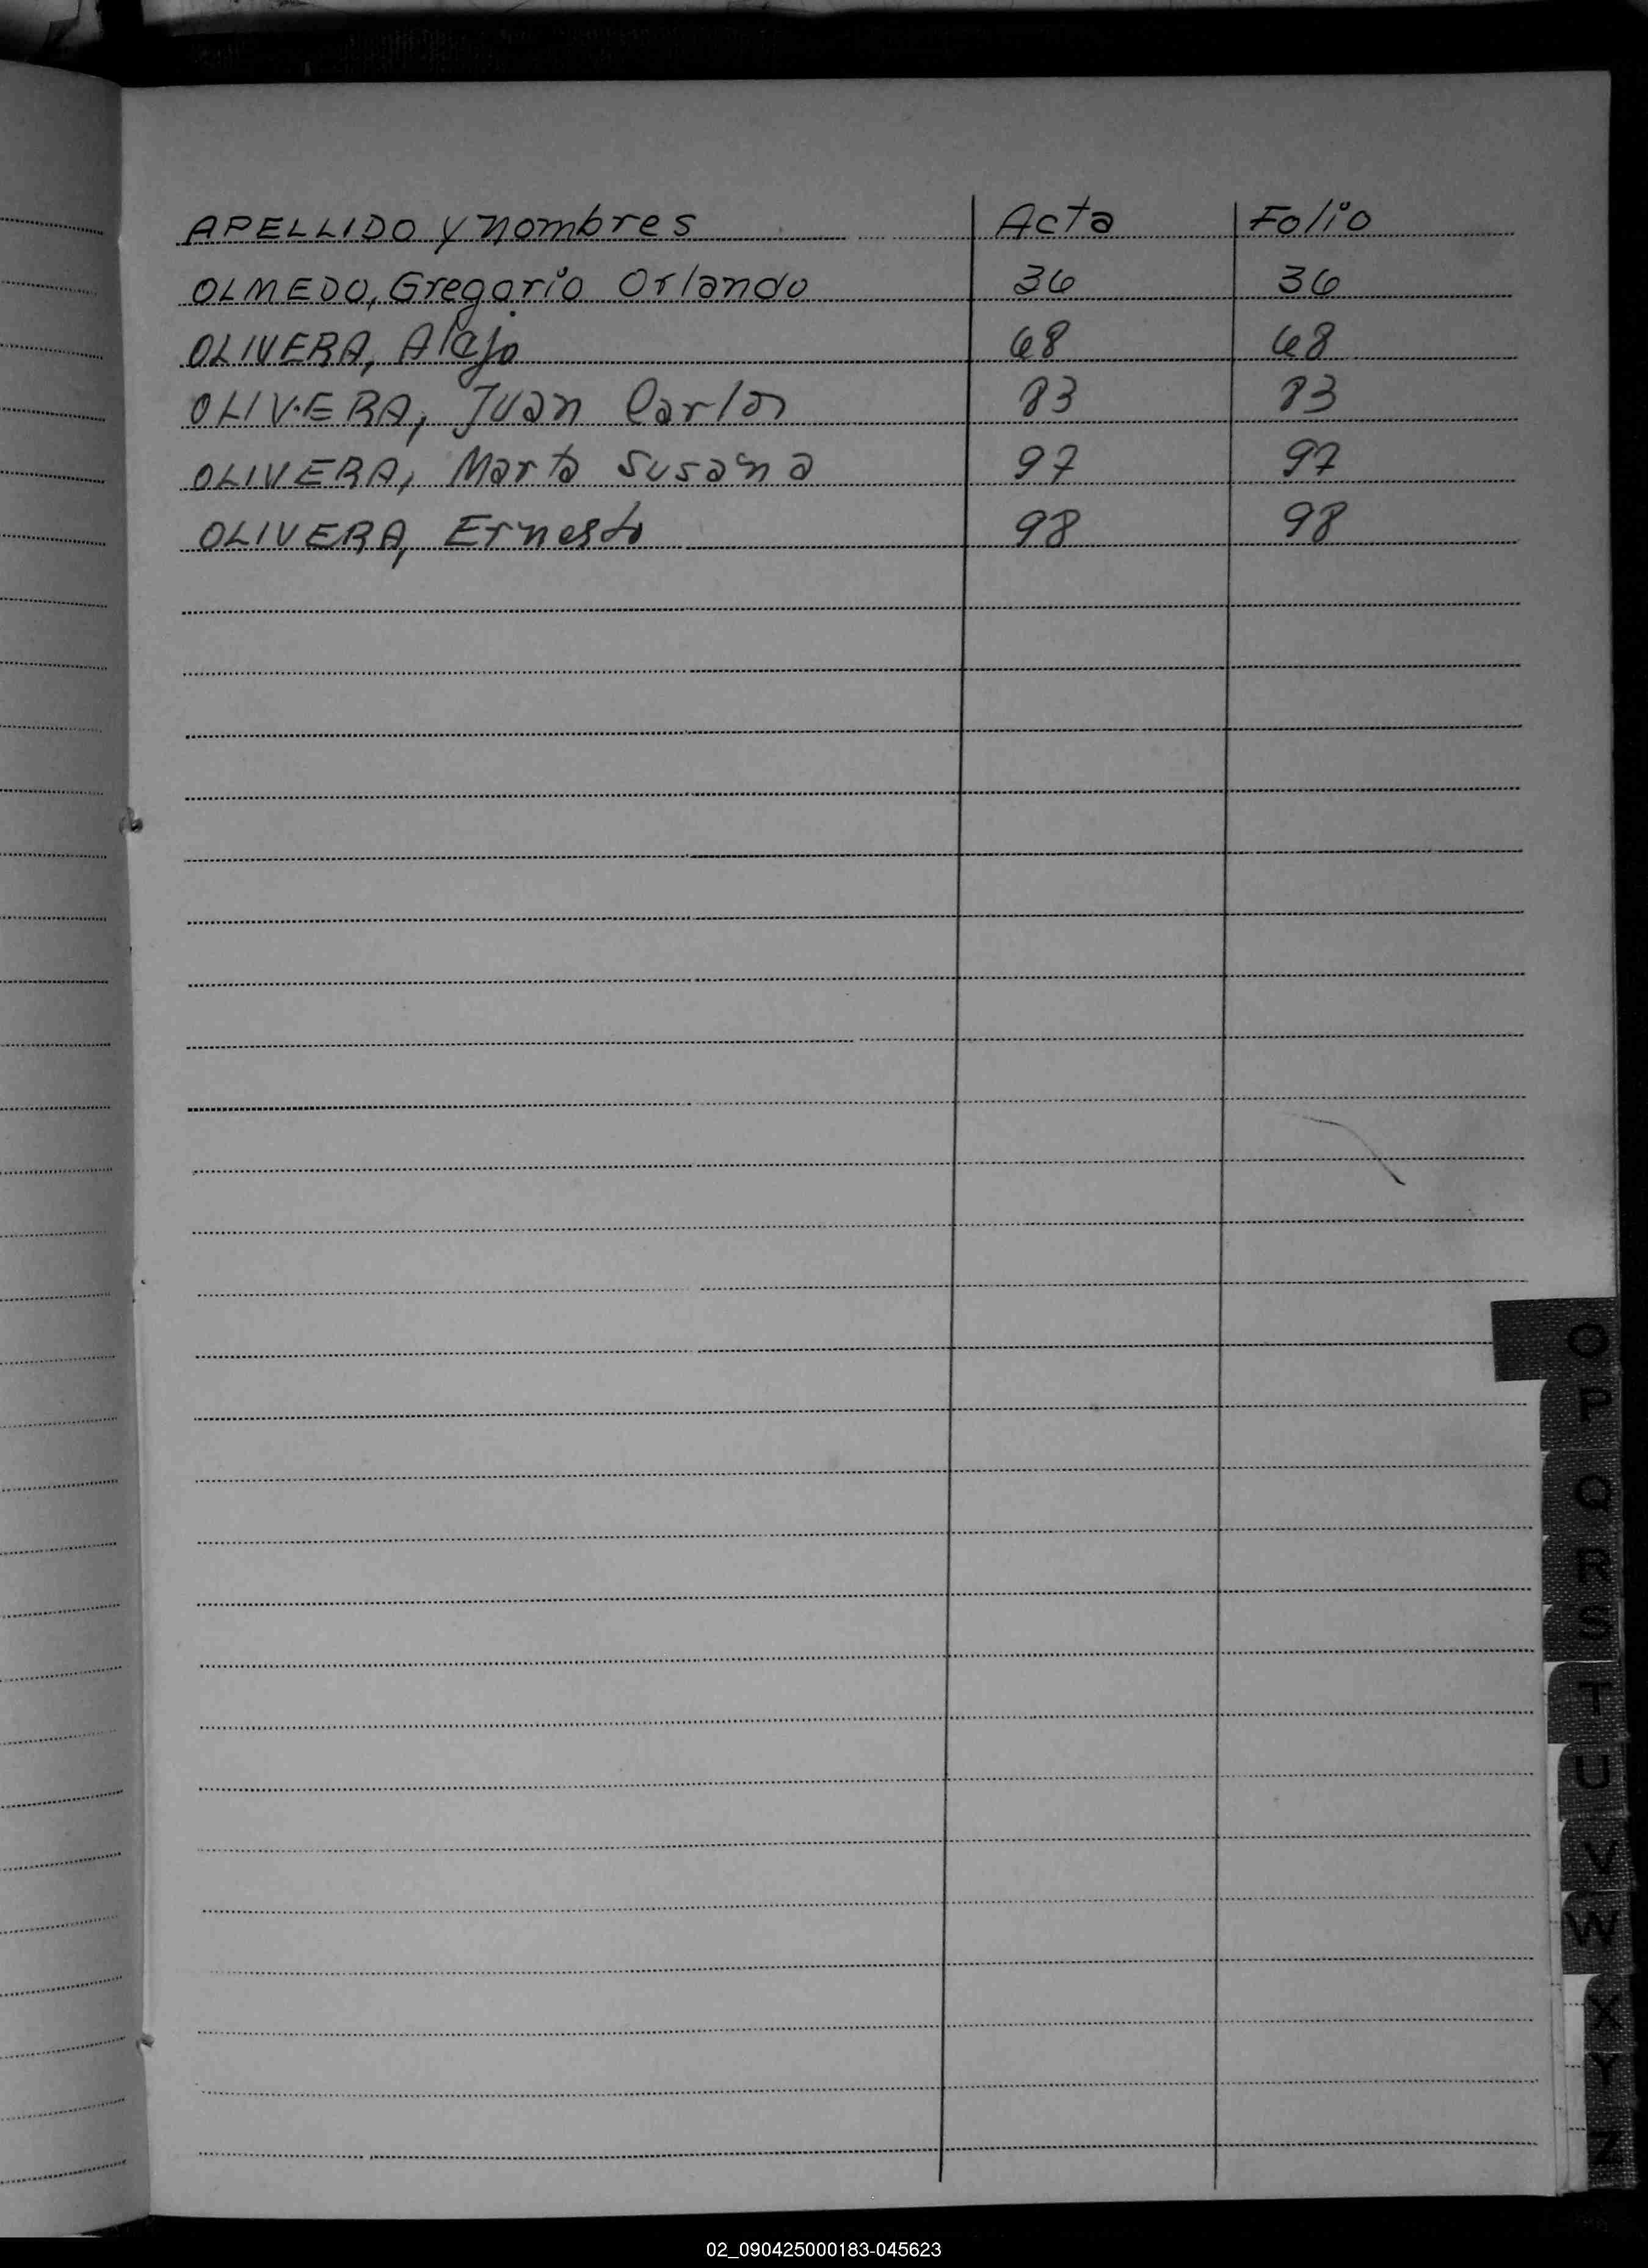 APELLIDO y nombres Acta Folio
OLMEDO, Gregorio Orlando 36 36
OLIVERA, Alejo 68 68
OLIVERA, Juan Carlos 83 83
OLIVERA, Marta Susana 97 97
OLIVERA, Ernesto 98 98
O
P
Q
R
S
T
U
V
W
X
Y
Z
02_090425000183-045623